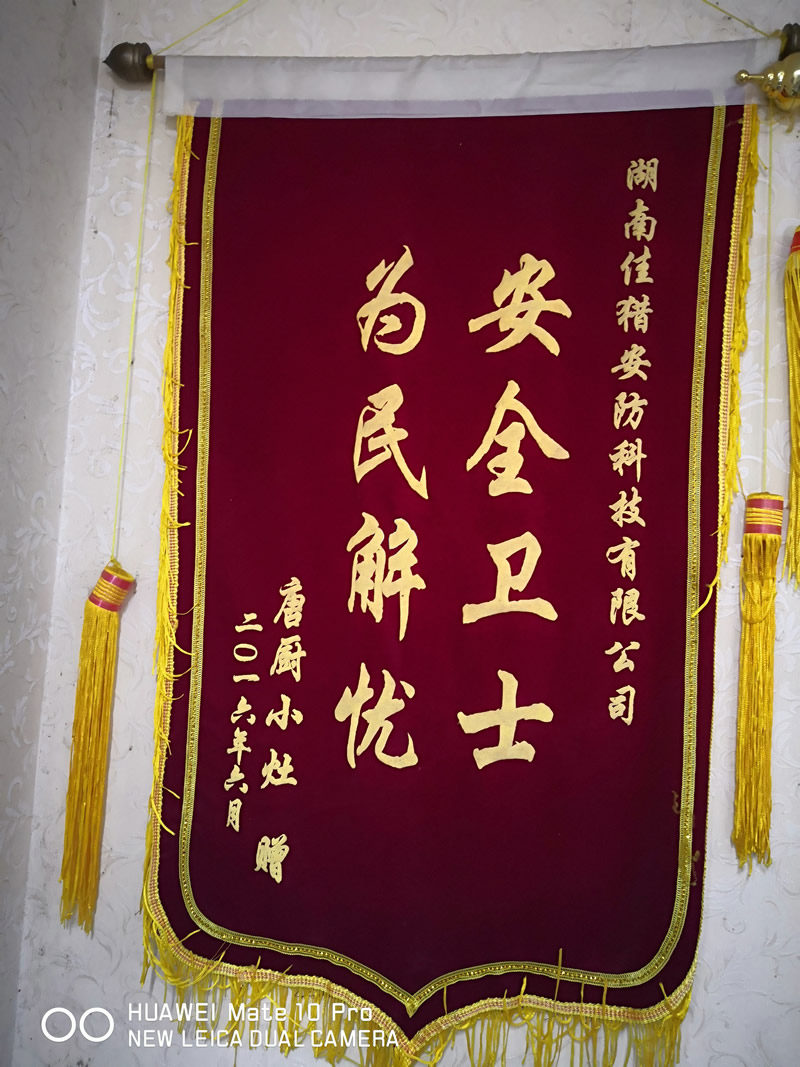 湖南佳猎安防科技有限公司
安全卫士
为民解忧
唐厨小灶 赠
二〇一六年六月
HUAWEI Mate 10 Pro
NEW LEICA DUAL CAMERA